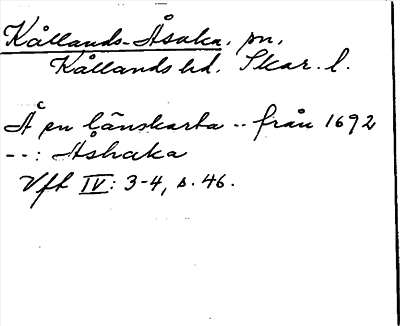 Kållands-Åsaka, sn,
Kållands hd. Skar. l.
Å en länskarta -- från 1692
--: Åshaka
Vft IV: 3-4, s. 46.